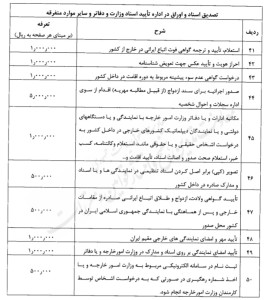 تصدیق اسناد و اوراق در اداره تأیید اسناد وزارت و دفاتر و سایر موارد متفرقه
ردیف
شرح
تعرفه
(بر مبنای هر صفحه به ریال)
۴۱
استعلام، تأیید و ترجمه گواهی فوت اتباع ایرانی در خارج از کشور
۱,۰۰۰,۰۰۰
۴۲
احراز هویت و تأیید عکس جهت تعویض شناسنامه
۱,۰۰۰,۰۰۰
۴۳
درخواست گواهی عدم سوء پیشینه مربوط به دوره اقامت در داخل کشور
۱,۰۰۰,۰۰۰
۴۴
صدور اجرائیه برای سند ازدواج (از قبیل مطالبه مهریه) اقدام از سوی
اداره سجلات و احوال شخصیه
۵,۰۰۰,۰۰۰
۴۵
مکاتبه ادارات و یا دفاتر وزارت امور خارجه با نمایندگی و یا دستگاههای
دولتی و یا نمایندگان دیپلماتیک کشورهای خارجی در داخل کشور به
درخواست اشخاص حقیقی و یا حقوقی مانند: استعلام وکالتنامه، کسب
خبر، استعلام صحت صدور و اصالت اسناد، تأیید اقامت و..
۱,۰۰۰,۰۰۰
۴۶
تصویر (کپی) برابر اصل کردن اسناد تنظیمی در نمایندگی ها و یا اسناد
و مدارک صادره در داخل کشور
۵۰۰,۰۰۰
۴۷
تأیید گواهی ولادت، ازدواج و طلاق اتباع ایرانی صادره از مقامات
خارجی و پس از هماهنگی با نمایندگی جمهوری اسلامی ایران در
کشور محل صدور
۵۰۰,۰۰۰
۴۸
تأیید مهر و امضای نمایندگی های خارجی مقیم ایران
۱,۰۰۰,۰۰۰
۴۹
تأیید امضای نمایندگی بر روی اسناد و مدارک در وزارت امورخارجه و یا دفاتر
۱,۰۰۰,۰۰۰
۵۰
ثبت نام در سامانه الکترونیکی مربوط به وزارت امور خارجه و یا
اخذ شماره رهگیری در صورتی که به درخواست اشخاص توسط
کارمندان وزارت امورخارجه انجام شود.
۵۰۰,۰۰۰